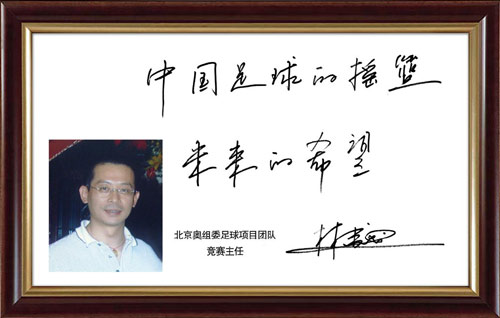 中国足球的摇篮
未来的希望
北京奥组委足球项目团队
竞赛主任